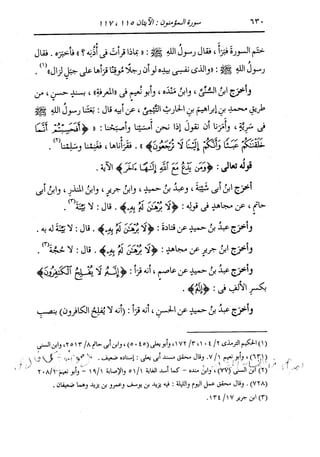 ٦٣٠ سورة المؤمنون : الآيتان ١١٥ ، ١١٧
ختم السورة فبَرَأ ، فقال رسول الله ﷺ : « بماذا قرأت في أذنه ؟ » فأخبره . فقال
رسول الله ﷺ : « والذي نفسي بيده لو أن رجلًا موقنًا قرأها على جبل لزال »(١) .
وأخرج ابن السني ، وابن منده ، وأبو نعيم في « المعرفة » ، بسند حسن ، من
طريق محمد بن إبراهيم بن الحارث التيمي ، عن أبيه قال : بعثنا رسول الله ﷺ
في سرية ، وأمرنا أن نقول إذا نحن أمسينا وأصبحنا : ﴿ أفحسبتم أنما
خلقناكم عبثا وأنكم إلينا لا ترجعون ﴾ . فقرأناها ، فغنمنا وسلمنا(٢) .
قوله تعالى : ﴿ ومن يدع مع الله إلها آخر ﴾ الآية .
أخرج ابن أبي شيبة ، وعبد بن حميد ، وابن جرير ، وابن المنذر ، وابن أبي
حاتم ، عن مجاهد في قوله : ﴿ لا برهان له به ﴾ . قال : لا بينة(٣) .
وأخرج عبد بن حميد عن قتادة : ﴿ لا برهان له به ﴾ . قال : لا بينة له به .
وأخرج ابن جرير عن مجاهد : ﴿ لا برهان له به ﴾ . قال : لا حجة(٣) .
وأخرج عبد بن حميد عن عاصم ، أنه قرأ : ﴿ إنه لا يفلح الكافرون ﴾
بكسر الألف في : ﴿ إنه ﴾ .
وأخرج عبد بن حميد عن الحسن ، أنه قرأ : (أنه لا يفلح الكافرون) بنصب
(١) الحكيم الترمذي ٢/ ١٠٤، ٣/ ١٧٢، وأبو يعلى (٥٠٤٥)، وابن أبي حاتم ٨/ ٢٥١٣، وابن السني
(٦٣١)، وأبو نعيم ١/ ٧. وقال محقق مسند أبي يعلى : إسناده ضعيف .
(٢) ابن السني (٧٧)، وابن منده - كما أسد الغابة ١/ ٥١ والإصابة ١/ ١٩ - وأبو نعيم ٢/ ٢٠٨
(٧٢٨). وقال محقق عمل اليوم والليلة : فيه يزيد بن يوسف وعمرو بن يزيد وهما ضعيفان .
(٣) ابن جرير ١٧/ ١٣٤.